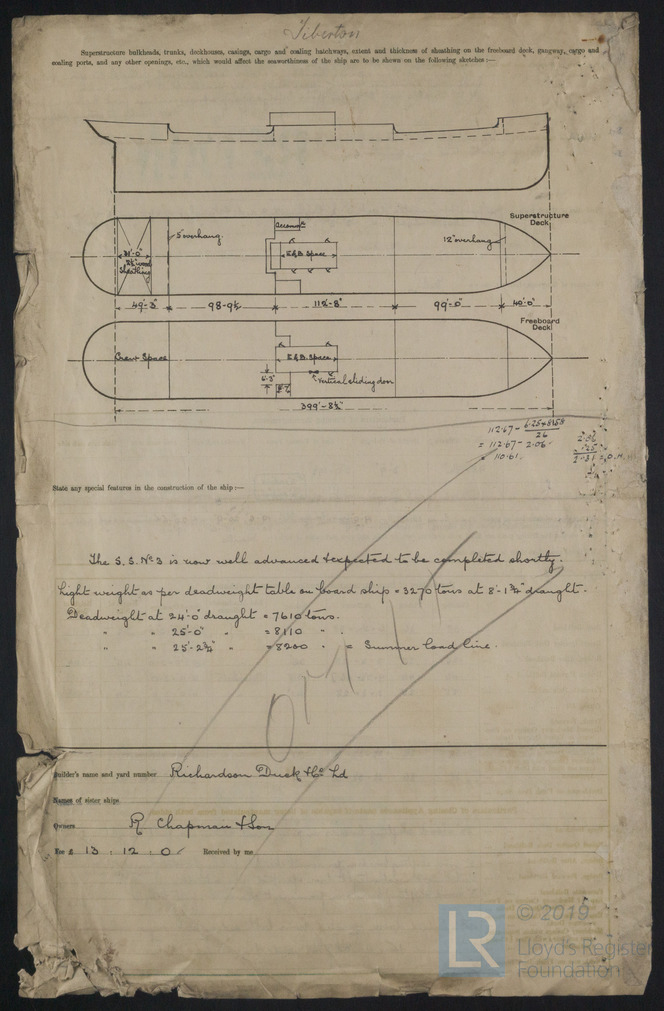 Tiberton
Superstructure bulkheads, trunks, deckhouses, casings, cargo and coaling hatchways, extent and thickness of sheathing on the freeboard deck, gangway, cargo and
coaling ports, and any other openings, etc., which would affect the seaworthiness of the ship are to be shewn on the following sketches :—
Superstructure
Deck
5' overhang
Accomn
12" overhang
31'-0"
2½" wood
sheathing
E & B Space
49'-3"
98'-9½"
112'-8"
99'-0"
40'-0"
Freeboard
Deck
Crew Space
E & B. Space
6'-3"
Vertical sliding door
399'-8½"
112·67 -
26
= 112·67 - 2·06
= 110·61
State any special features in the construction of the ship :—
The S.S. No 3 is now well advanced & expected to be completed shortly.
Light weight as per deadweight table on board ship = 3270 tons at 8'-1¾" draught.
Deadweight at 24'-0" draught = 7610 tons.
" " 25'-0" " = 8110 " .
" " 25'-2¾" " = 8200 " = Summer load line.
Builder's name and yard number Richardson Duck & Co Ltd
Names of sister ships
Owners R Chapman & Son
Fee £ 13 : 12 : 0 Received by me
LR
© 2019
Lloyd's Register
Foundation